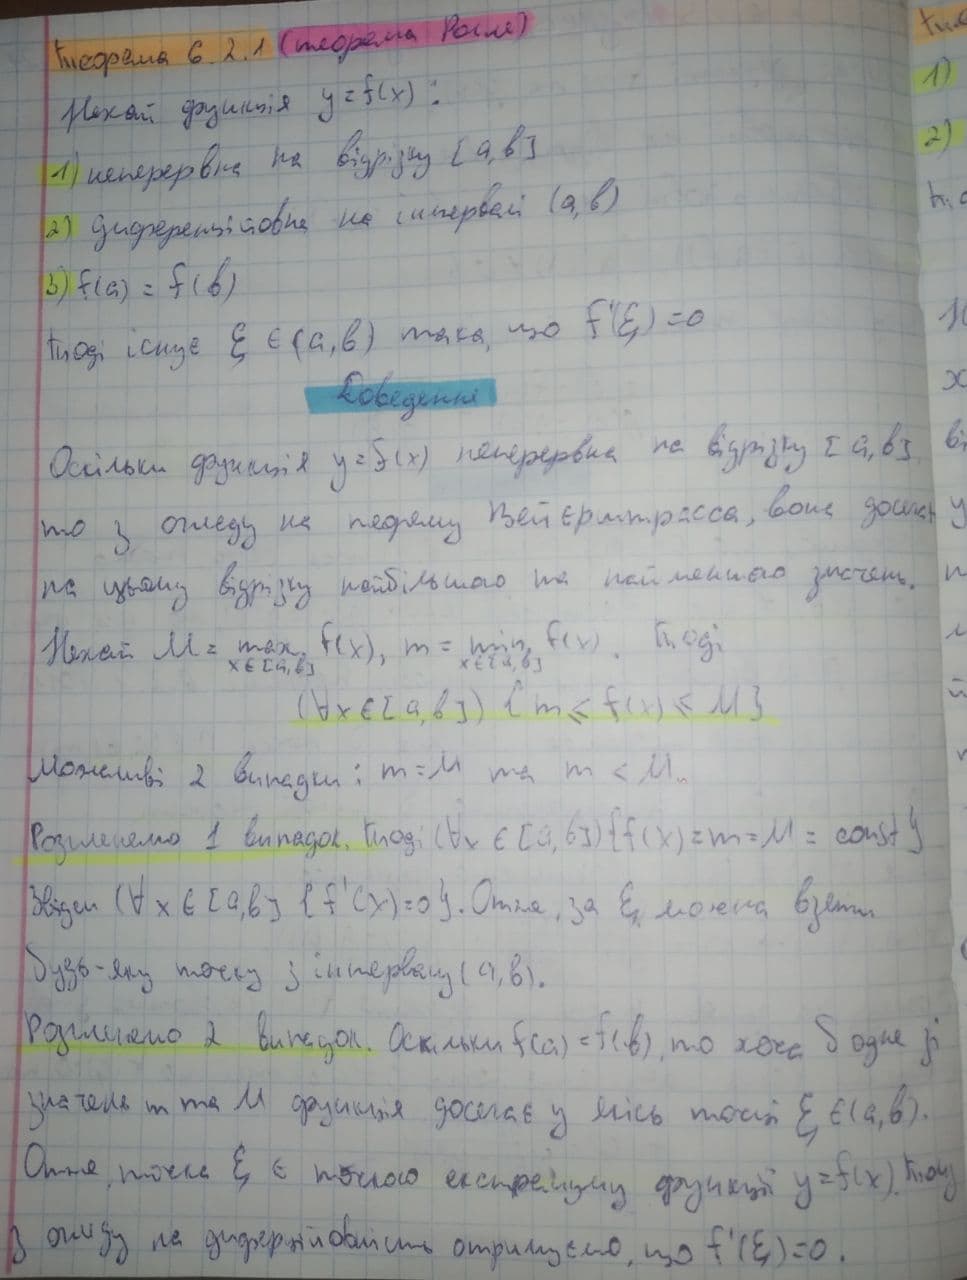 Теорема 6.2.1 (теорема Ролля)
Нехай функція y=f(x):
1) неперервна на відрізку [a,b]
2) диференційовна на інтервалі (a,b)
3) f(a) = f(b)
Тоді існує ξ ∈ (a,b) така, що f'(ξ)=0
Доведення
Оскільки функція y=f(x) неперервна на відрізку [a,b],
то з огляду на теорему Вейєрштрасса, вона досягає
на цьому відрізку найбільшого та найменшого значень.
Нехай M = max x∈[a,b] f(x), m = min x∈[a,b] f(x). Тоді
(∀x∈[a,b]) {m ≤ f(x) ≤ M}
Можливі 2 випадки: m=M та m < M.
Розглянемо 1 випадок. Тоді (∀x ∈ [a,b]){f(x)=m=M = const}
Звідси (∀x∈[a,b] {f'(x)=0}. Отже, за ξ можна взяти
будь-яку точку з інтервалу (a,b).
Розглянемо 2 випадок. Оскільки f(a) = f(b), то хоча б одне зі
значень m та M функція досягає у якійсь точці ξ ∈(a,b).
Отже, точка ξ є точкою екстремуму функції y=f(x). Тому
з огляду на диференційовність отримуємо, що f'(ξ)=0.
1)
2)